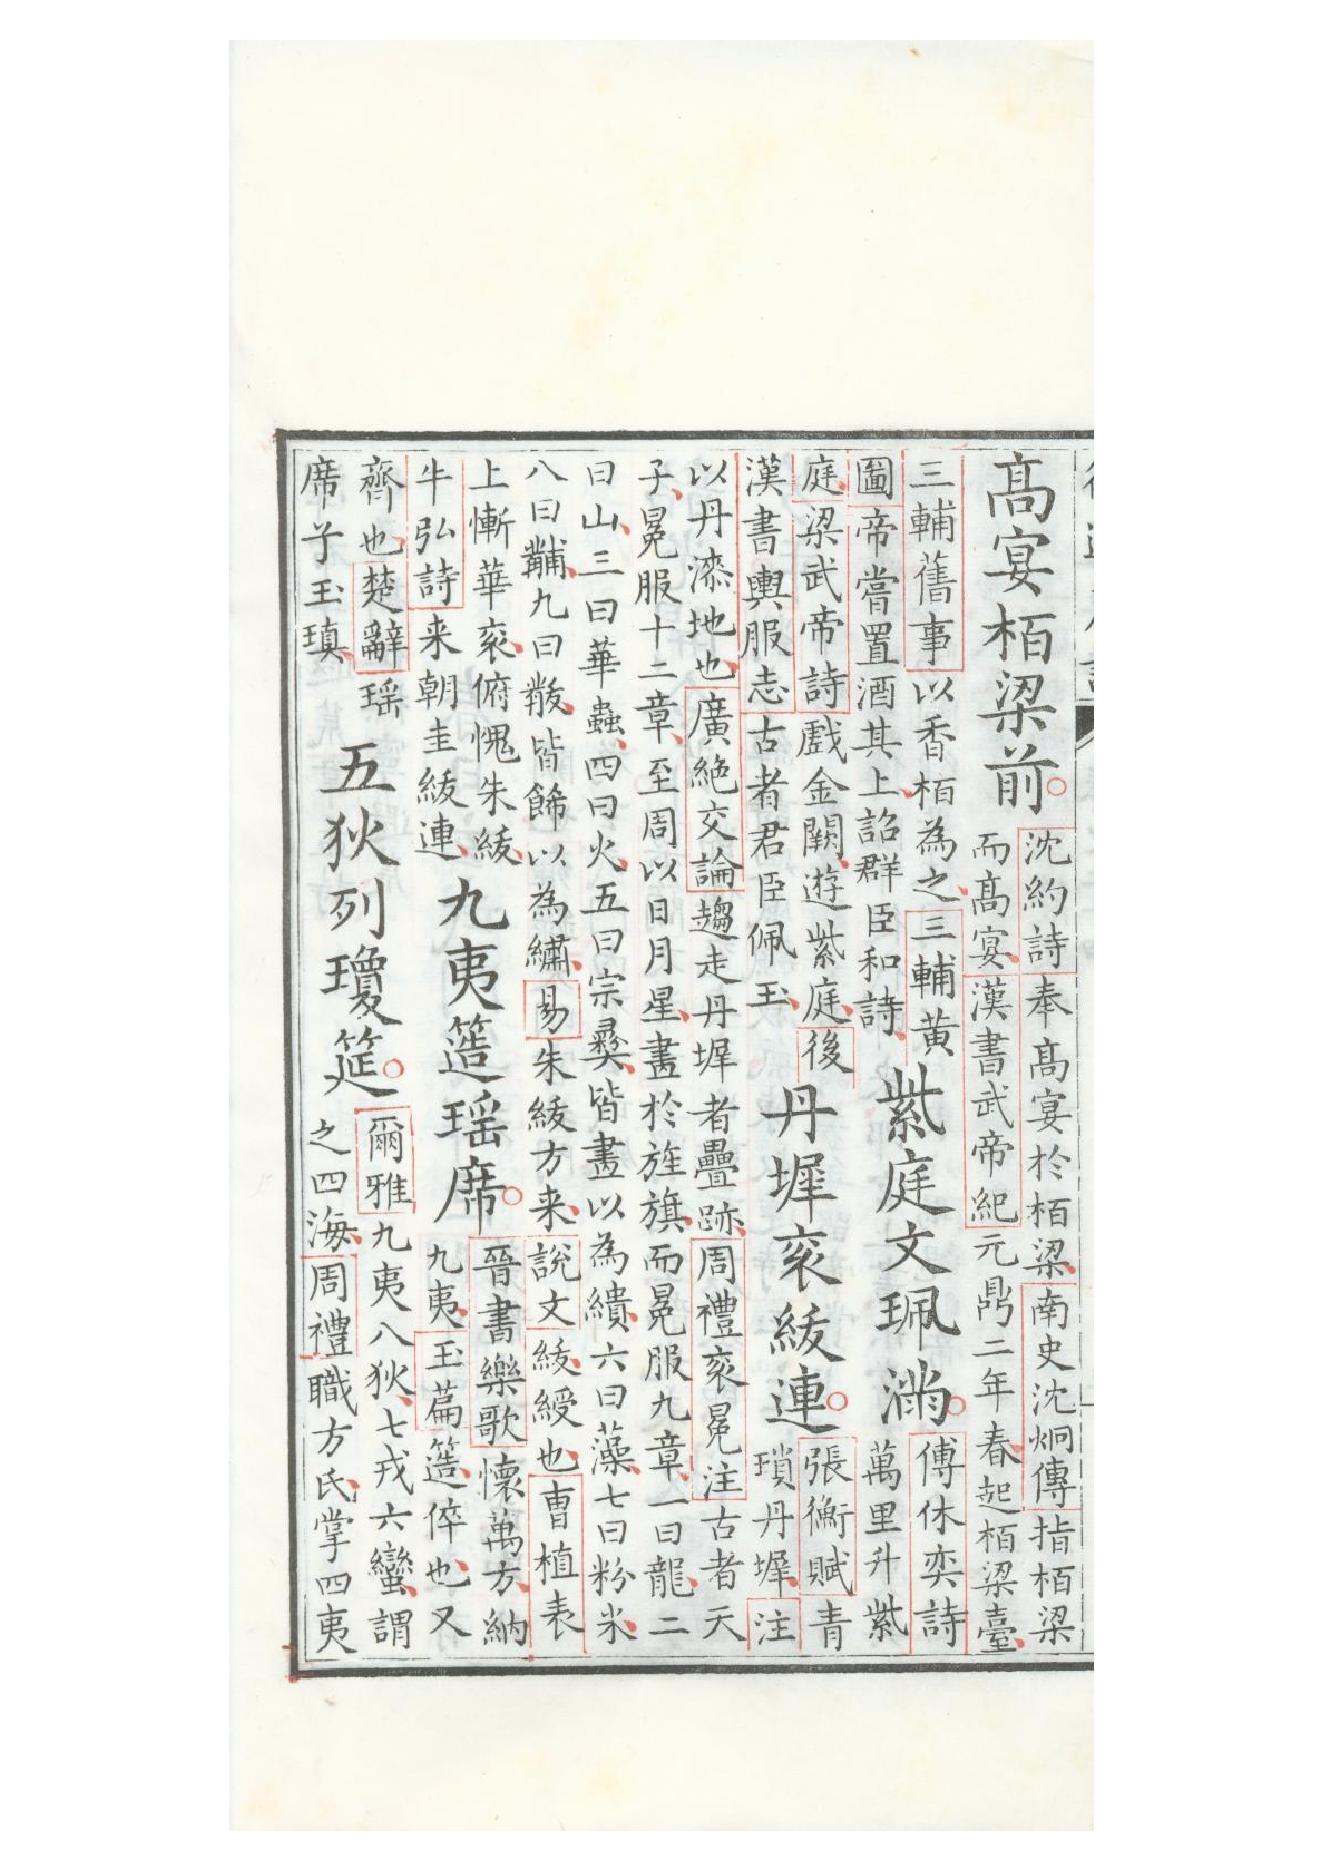 髙宴栢梁前
沈約詩奉髙宴於栢梁南史沈炯傳指栢梁
而髙宴漢書武帝紀元鼎二年春起栢梁臺
三輔舊事以香栢為之三輔黄
圖帝嘗置酒其上詔群臣和詩
紫庭文珮滿
傅休奕詩
萬里升紫
庭梁武帝詩戲金闕遊紫庭後
漢書輿服志古者君臣佩玉
丹墀衮紱連
張衡賦青
瑣丹墀注
以丹漆地也廣絶交論趨走丹墀者疊跡周禮衮冕注古者天
子冕服十二章至周以日月星畫於旌旗而冕服九章一曰龍二
曰山三曰華蟲四曰火五曰宗彝皆畫以為繢六曰藻七曰粉米
八曰黼九曰黻皆餙以為繡易朱紱方来說文紱綬也曹植表
上慚華衮俯愧朱紱
牛弘詩来朝圭紱連
九夷簉瑶席
晉書樂歌懷萬方納
九夷玉篇簉倅也又
齊也楚辭瑶
席子玉瑱
五狄列瓊筵
爾雅九夷八狄七戎六蠻謂
之四海周禮職方氏掌四夷